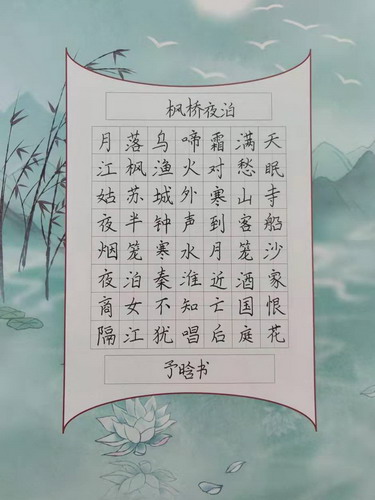 枫桥夜泊
月落乌啼霜满天
江枫渔火对愁眠
姑苏城外寒山寺
夜半钟声到客船
烟笼寒水月笼沙
夜泊秦淮近酒家
商女不知亡国恨
隔江犹唱后庭花
予晗书